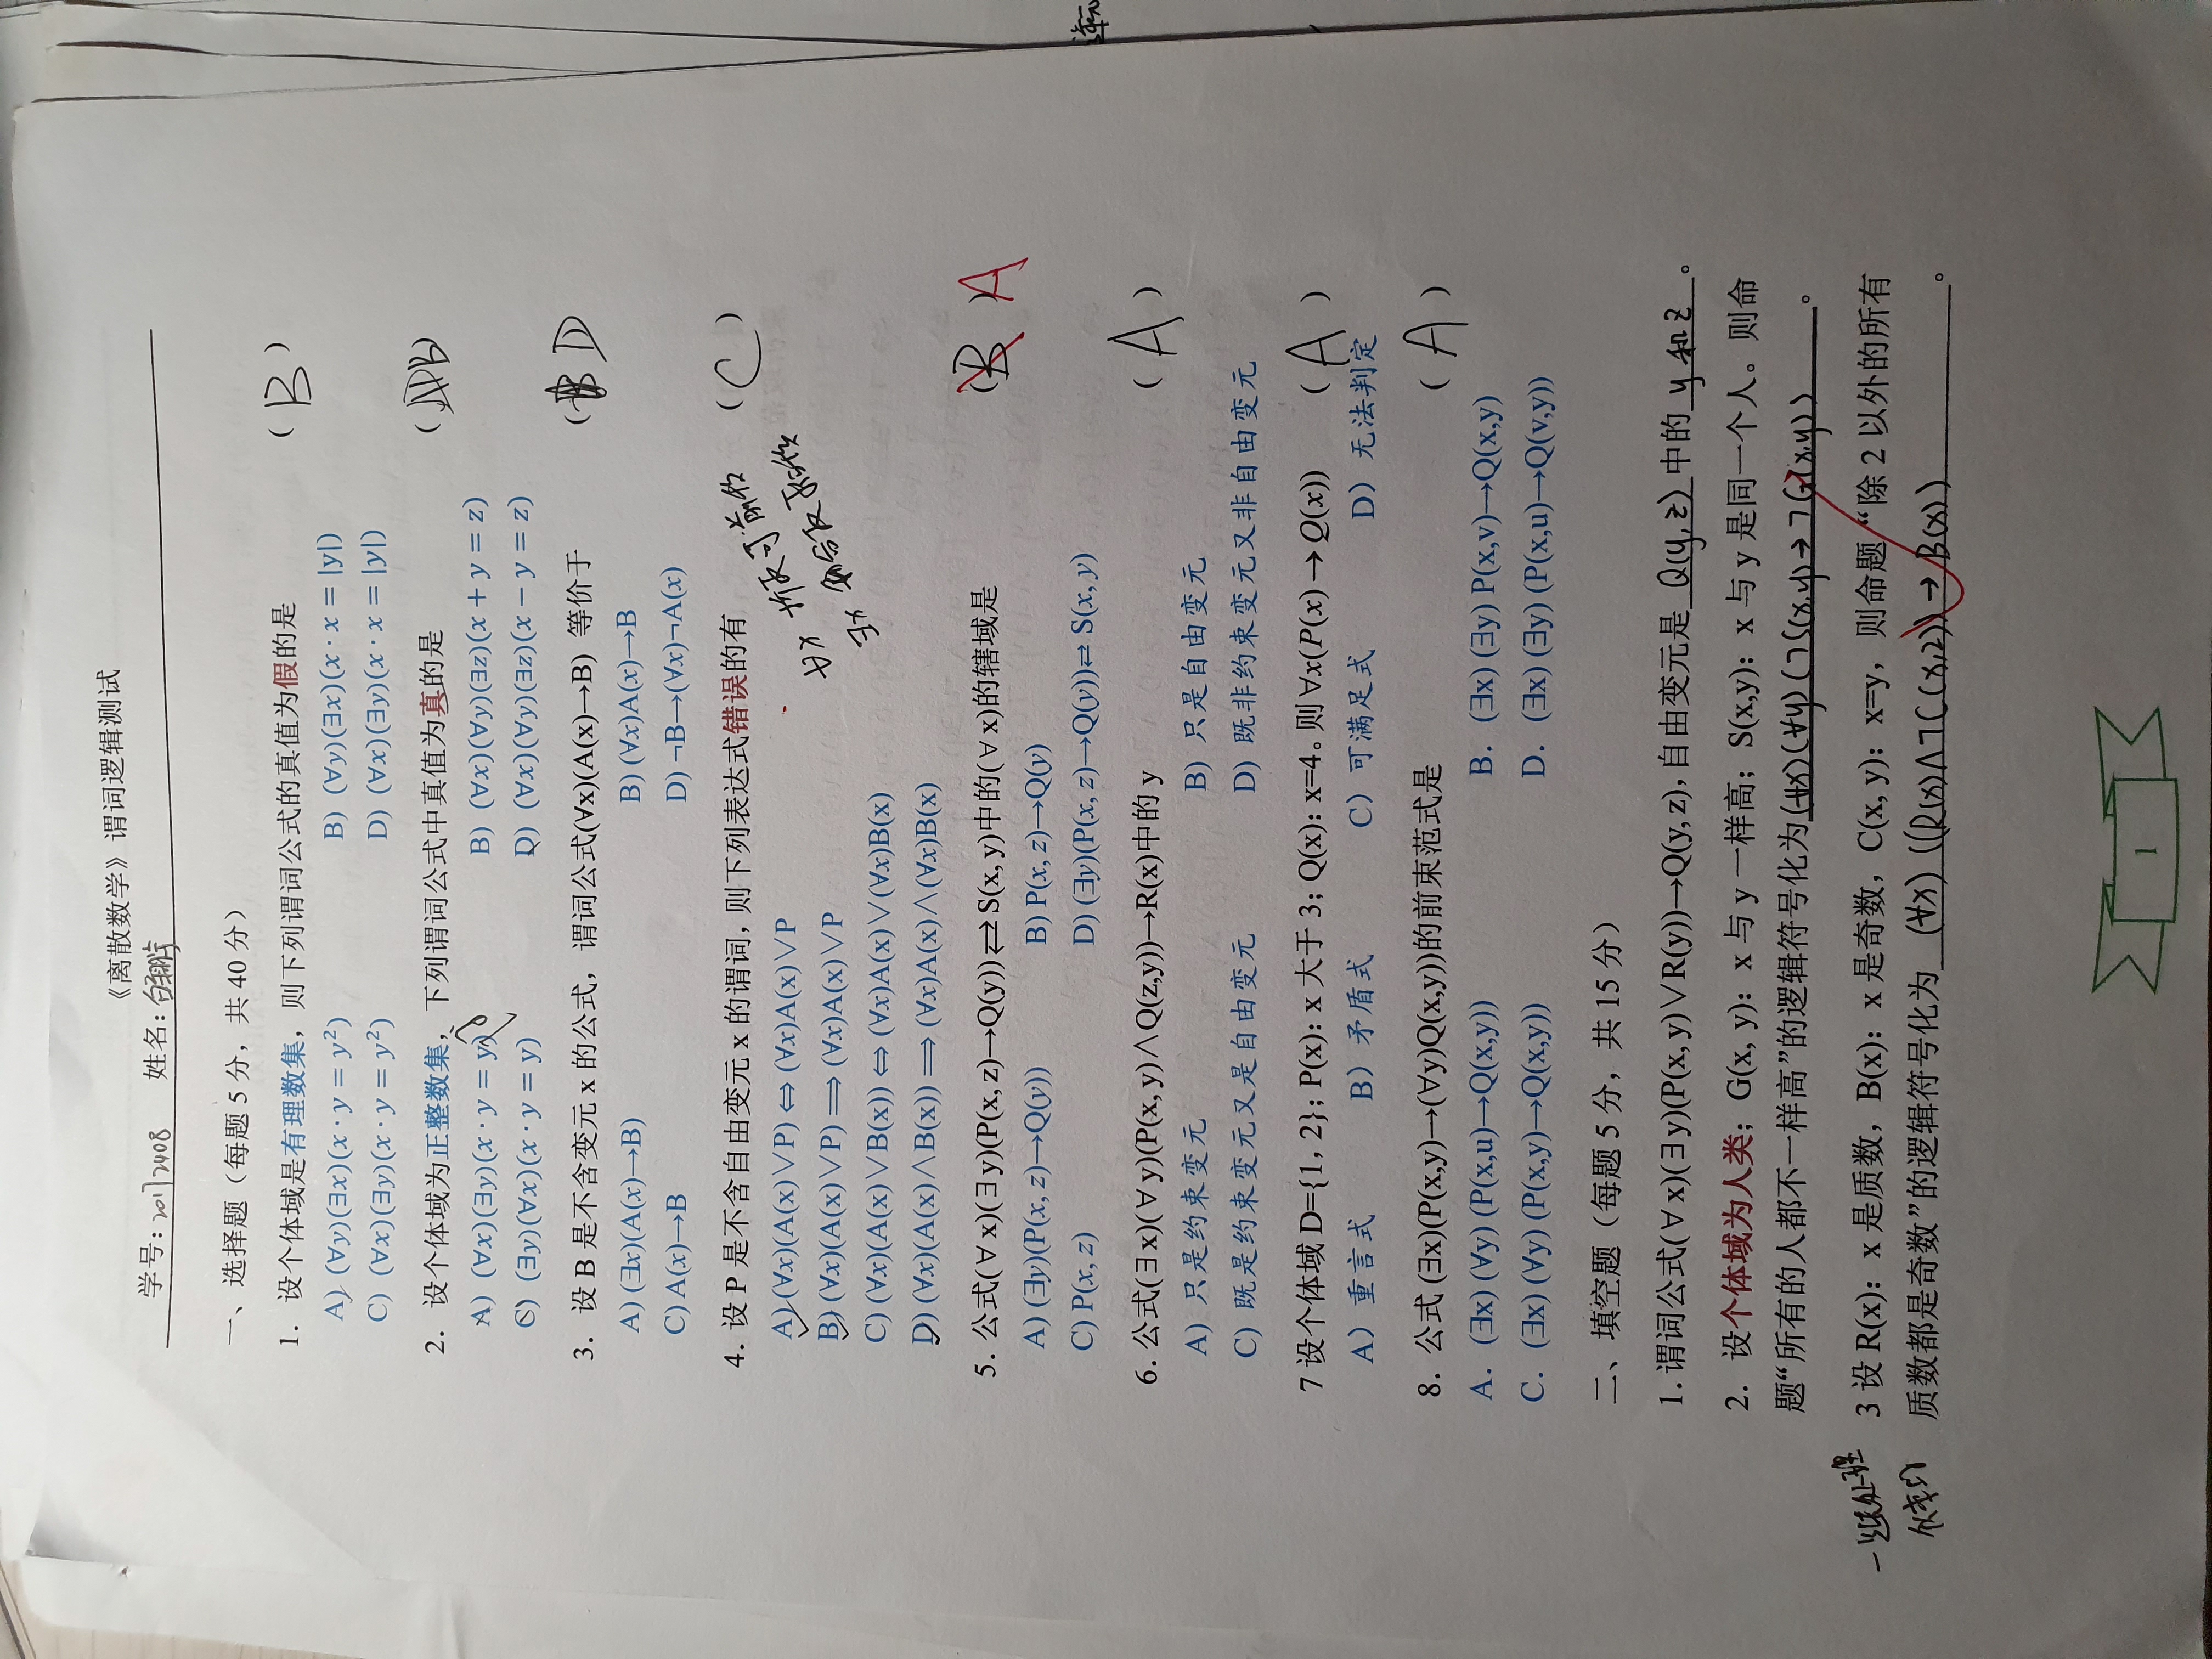 《离散数学》谓词逻辑测试
学号：20172408 姓名：
一、选择题（每题 5 分，共 40 分）
1. 设个体域是有理数集，则下列谓词公式的真值为假的是 （B）
A) (∀y)(∃x)(x · y = y²) B) (∀y)(∃x)(x · x = |y|)
C) (∀x)(∃y)(x · y = y²) D) (∀x)(∃y)(x · x = |y|)
2. 设个体域为正整数集，下列谓词公式中真值为真的是 （B）
A) (∀x)(∃y)(x · y = y) B) (∀x)(∀y)(∃z)(x + y = z)
C) (∃y)(∀x)(x · y = y) D) (∀x)(∀y)(∃z)(x − y = z)
3. 设 B 是不含变元 x 的公式，谓词公式(∀x)(A(x)→B) 等价于 （D
A) (∃x)(A(x)→B) B) (∀x)A(x)→B
C) A(x)→B D) ¬B→(∀x)¬A(x)
4. 设 P 是不含自由变元 x 的谓词，则下列表达式错误的有 （C）
A) (∀x)(A(x)∨P) ⇔ (∀x)A(x)∨P
B) (∀x)(A(x)∨P) ⟹ (∀x)A(x)∨P
C) (∀x)(A(x)∨B(x)) ⇔ (∀x)A(x)∨(∀x)B(x)
D) (∀x)(A(x)∧B(x)) ⟹ (∀x)A(x)∧(∀x)B(x)
∀x
∃x
5. 公式(∀x)(∃y)(P(x, z)→Q(y))⇄S(x, y)中的(∀x)的辖域是 （B） A
A) (∃y)(P(x, z)→Q(y)) B) P(x, z)→Q(y)
C) P(x, z) D) (∃y)(P(x, z)→Q(y))⇄ S(x, y)
6. 公式(∃x)(∀y)(P(x, y)∧Q(z,y))→R(x)中的 y （A）
A) 只是约束变元 B) 只是自由变元
C) 既是约束变元又是自由变元 D) 既非约束变元又非自由变元
7 设个体域 D={1，2}；P(x)：x 大于 3；Q(x)：x=4。则 ∀x(P(x) → Q(x)) （A）
A）重言式 B）矛盾式 C）可满足式 D）无法判定
8. 公式 (∃x)(P(x,y)→(∀y)Q(x,y))的前束范式是 （A）
A. (∃x) (∀y) (P(x,u)→Q(x,y)) B. (∃x) (∃y) P(x,v)→Q(x,y)
C. (∃x) (∀y) (P(x,y)→Q(x,y)) D. (∃x) (∃y) (P(x,u)→Q(v,y))
二、填空题（每题 5 分，共 15 分）
1. 谓词公式(∀x)(∃y)(P(x, y)∨R(y))→Q(y, z)，自由变元是 Q(y,z) 中的 y 和 z 。
2. 设个体域为人类；G(x, y)：x 与 y 一样高；S(x,y)：x 与 y 是同一个人。则命
题“所有的人都不一样高”的逻辑符号化为 (∀x)(∀y)(¬S(x,y)→¬G(x,y)) 。
3 设 R(x)：x 是质数，B(x)：x 是奇数，C(x, y)：x=y，则命题“除 2 以外的所有
质数都是奇数”的逻辑符号化为 (∀x)((R(x)∧¬C(x,2))→B(x)) 。
1